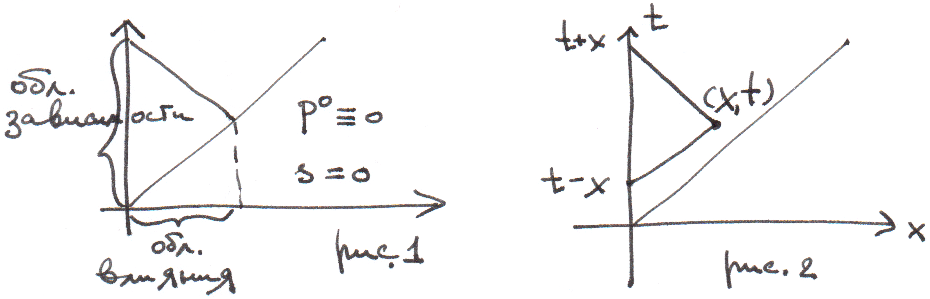 обл.
зависимости
p⁰ ≡ 0
s = 0
обл.
влияния
рис. 1
t
t+x
(x,t)
t-x
x
рис. 2